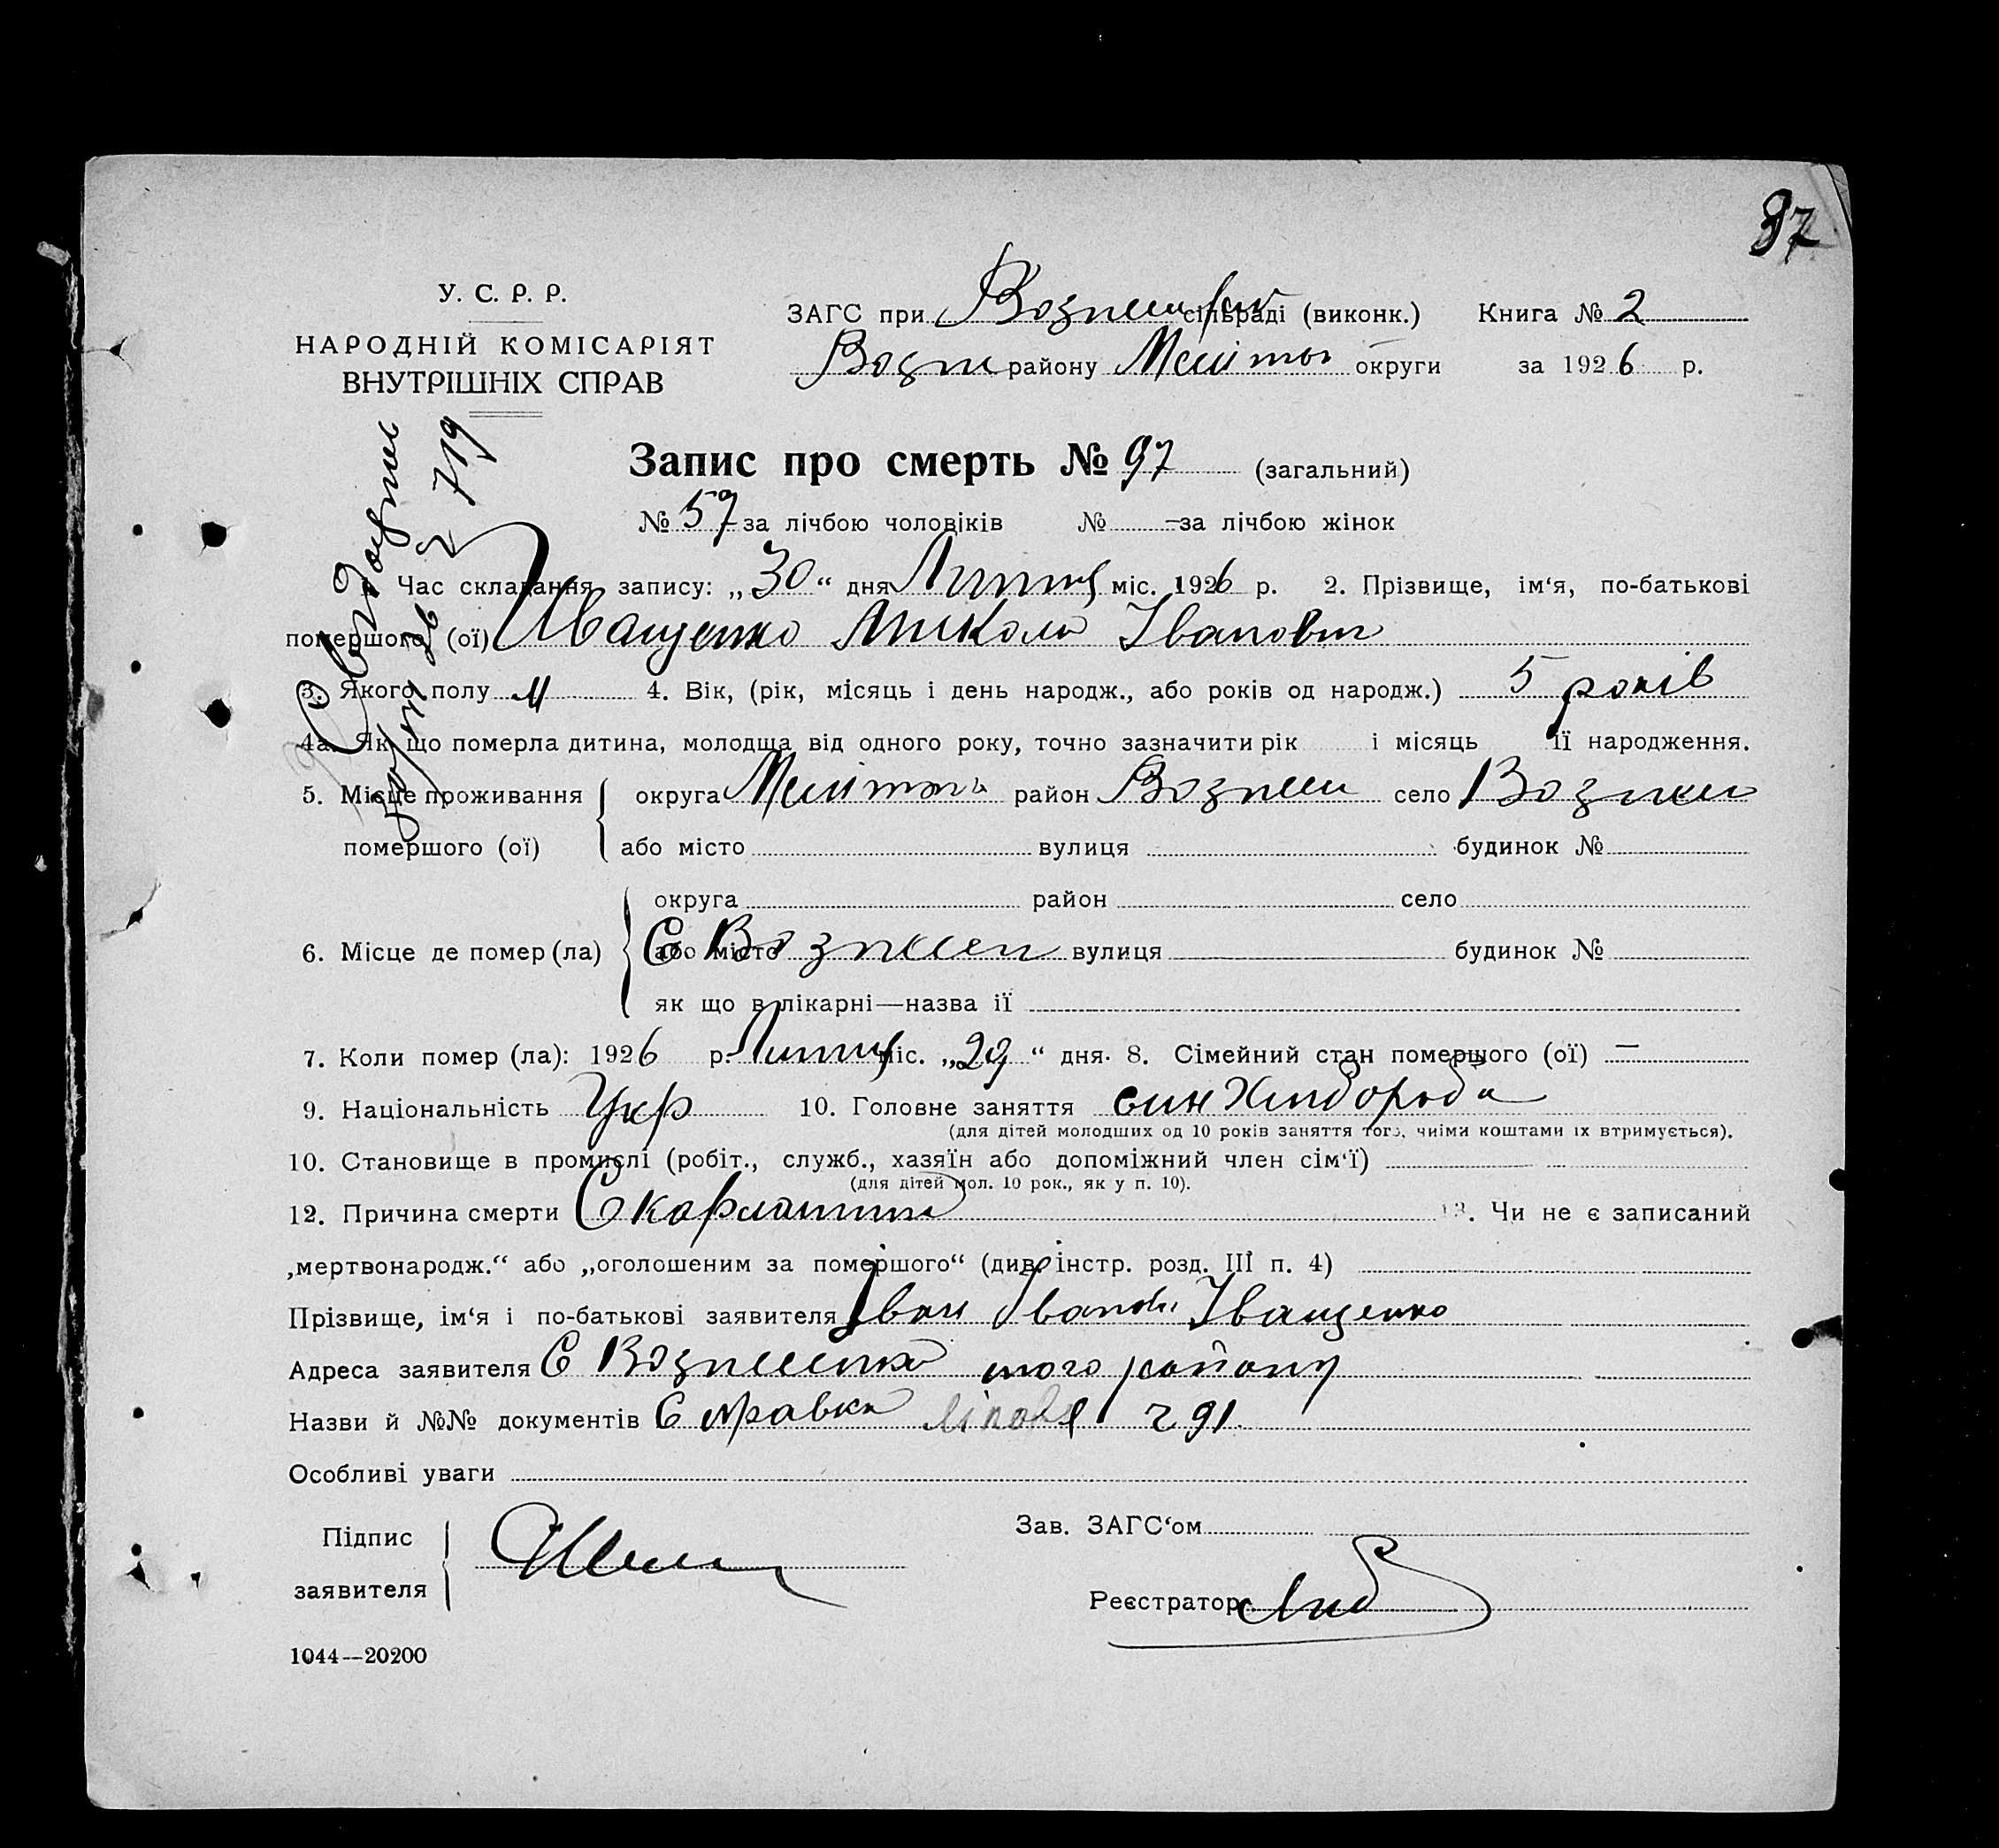 97
У. С. Р. Р.
НАРОДНІЙ КОМІСАРІЯТ
ВНУТРІШНІХ СПРАВ
ЗАГС при сільраді (виконк.) Книга № 2
Возн району Меліто округи за 1926 р.
Запис про смерть № 97 (загальний)
№ 57 за лічбою чоловіків № — за лічбою жінок
Час складання запису: „30“ дня Липня міс. 1926 р. 2. Прізвище, ім‘я, по-батькові
помершого (ої) Иващенко Микола Іванович
3. Якого полу М 4. Вік, (рік, місяць і день народж., або років од народж.) 5 років
4а. Як що померла дитина, молодща від одного року, точно зазначити рік і місяць її народження.
5. Місце проживання округа Меліто район Вознесен село Вознесен
помершого (ої) або місто вулиця будинок №
округа район село
6. Місце де помер (ла) або місто С Вознесен вулиця будинок №
як що в лікарні—назва її
7. Коли помер (ла): 1926 р. Липня міс. „29“ дня. 8. Сімейний стан померщого (ої) —
9. Національність Укр 10. Головне заняття син Хлібороба
(для дітей молодших од 10 років заняття того, чиїми коштами їх втримується).
10. Становище в промислі (робіт., служб., хазяїн або допоміжний член сім‘ї)
(для дітей мол. 10 рок., як у п. 10).
12. Причина смерти Скарлатина 13. Чи не є записаний
„мертвонародж.“ або „оголошеним за помершого“ (див. інстр. розд. III п. 4)
Прізвище, ім‘я і по-батькові заявителя Іван Іванов Іващенко
Адреса заявителя С Вознесенка того району
Назви й №№ документів Справка 291
Особливі уваги
Підпис
заявителя
Зав. ЗАГС‘ом
Реєстратор
1044—20200